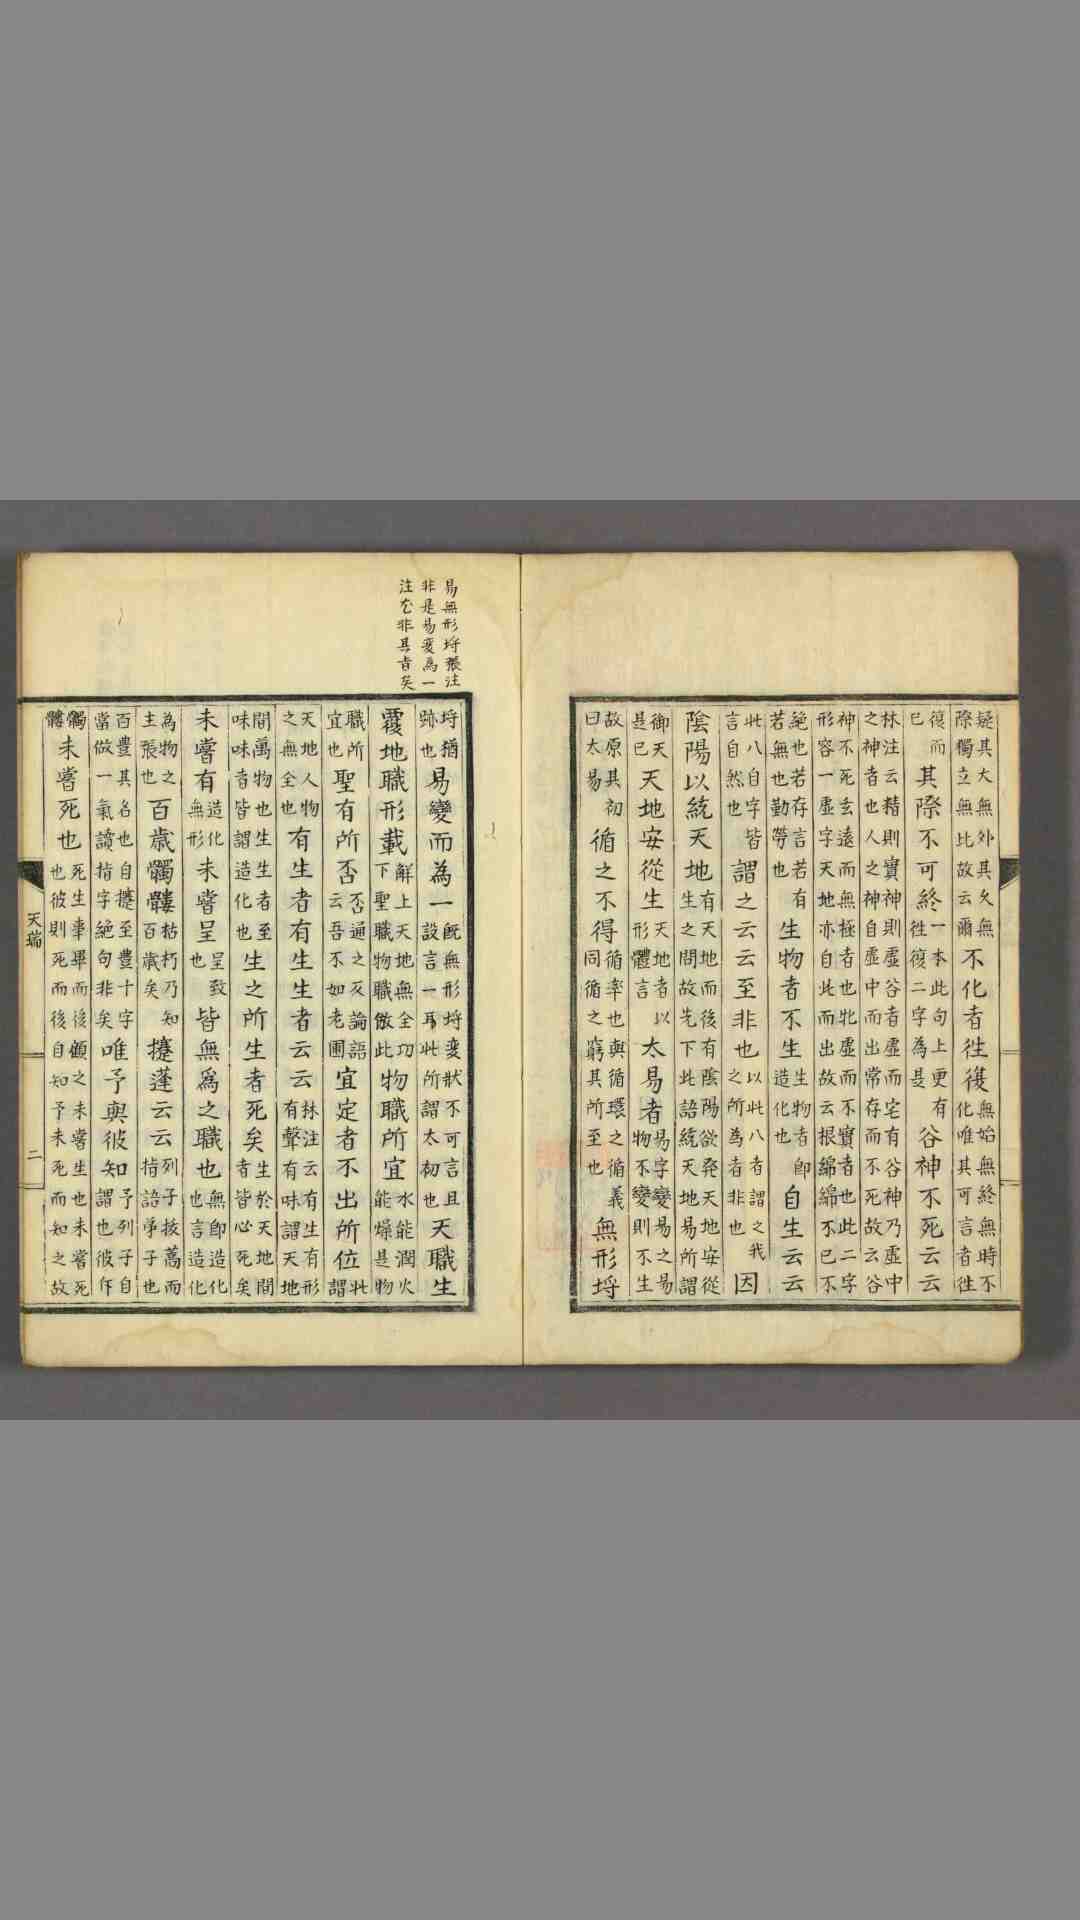 疑其大無外其久無際獨立無比故云爾不化者往復無始無終無時不化唯其可言者往
復而已其際不可終一本此句上更有往復二字為是谷神不死云云
林注云精則實神則虛谷者虛而宅有谷神乃虛中之神者也人之神自虛中而出常存而不死故云谷
神不死玄遠而無極者也牝虛而不實者也此二字形容一虛字天地亦自此而出故云根綿綿不已不
絶也若存言若有若無也勤勞也生物者不生生物者即造化也自生云云
此八自字皆言自然也謂之云云至非也以此八者謂之我之所為者非也因
陰陽以統天地有天地而後有陰陽欲発天地安從生之間故先下此語統天地易所謂
御天是已天地安從生天地者以形體言太易者易字變易之易物不變則不生
故原其初曰太易循之不得循率也與循環之循義同循之窮其所至也無形埒
易無形埒張注
非是易変為一
注非矣
埒猶跡也易變而為一既無形埒変狀不可言且設言一耳此所謂太初也天職生
覆地職形載解上天地無全功下聖職物職倣此物職所宜水能潤火能燥是物
職所宜也聖有所否否通之反論語云吾不如老圃宜定者不出所位此謂
天地人物之無全也有生者有生生者云云林注云有生有形有聲有味謂天地
間萬物也生生者至味味者皆謂造化也生之所生者死矣生於天地間者皆必死矣
未嘗有造化無形未嘗呈呈致也皆無為之職也無即造化也言造化
為物之主張也百歳髑髏枯朽乃知百歳矣攓蓬云云列子拔蒿而指語爭子也
百豊其名也自攓至豊十字當做一氣讀指字絶句非矣唯予與彼知予列子自謂也彼斥
髑髏未嘗死也死生事畢而後顧之未嘗生也未嘗死也彼則死而後自知予未死而知之故
天瑞
二